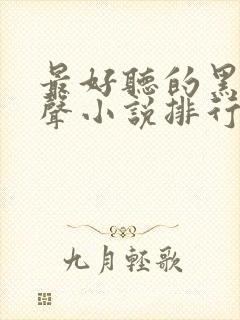 最好聽的黑
聲小說排行
九月輕歌